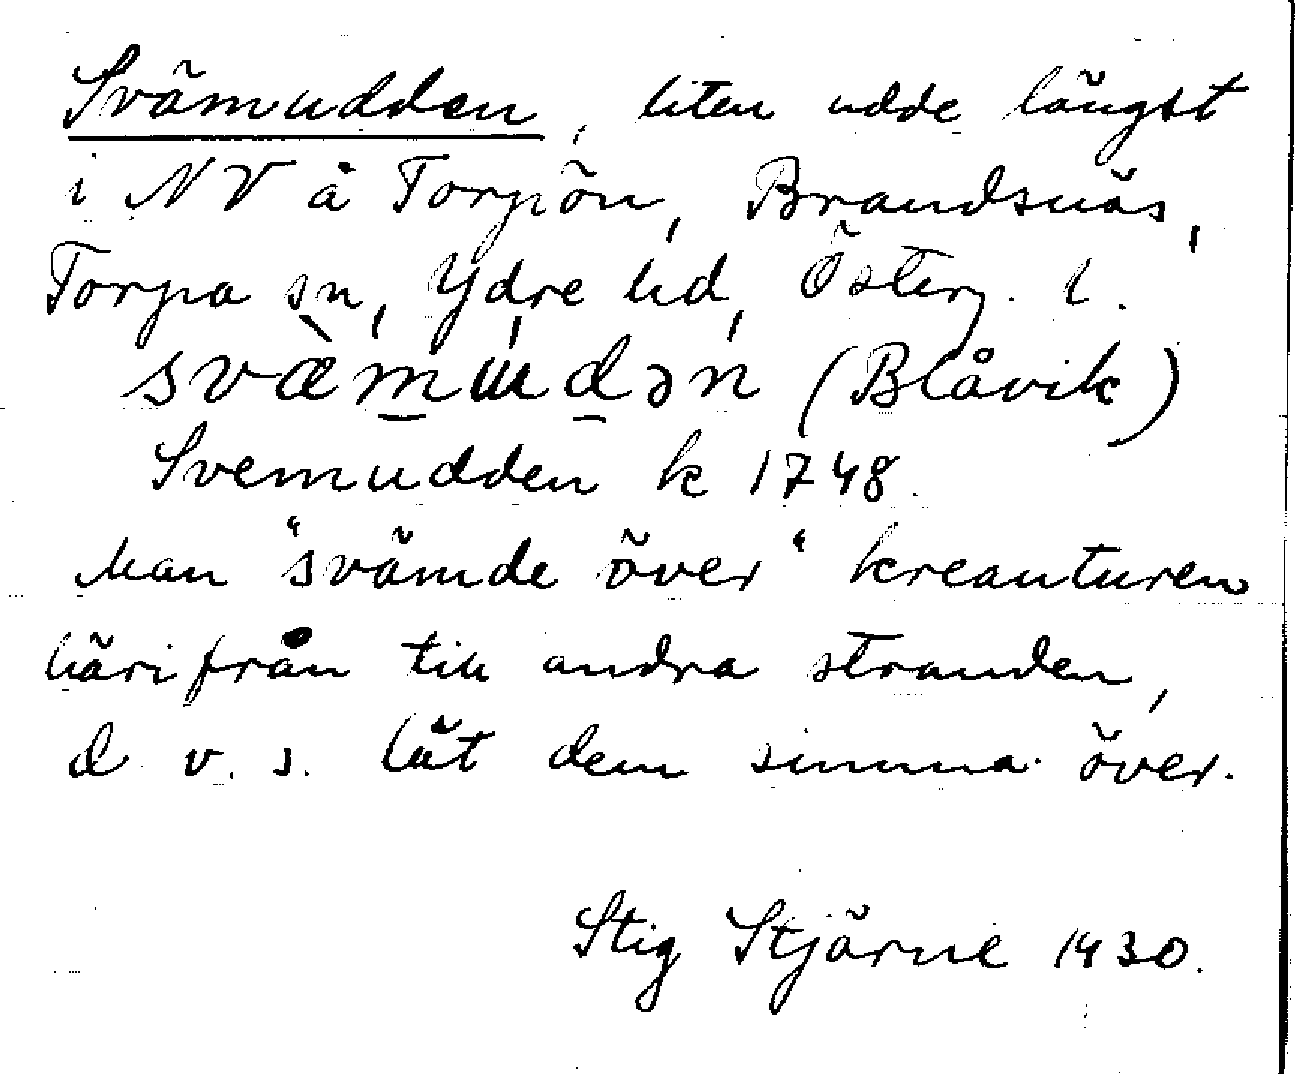 Svämudden, liten udde längst
i NV å Torpön, Brandsnäs,
Torpa sn, Ydre hd, Österg. l.
svæ̀mɯdən (Blåvik)
Svemudden k 1748.
Man "svämde över" kreaturen
härifrån till andra stranden,
d v. s. lät dem simma över.
Stig Stjärne 1930.